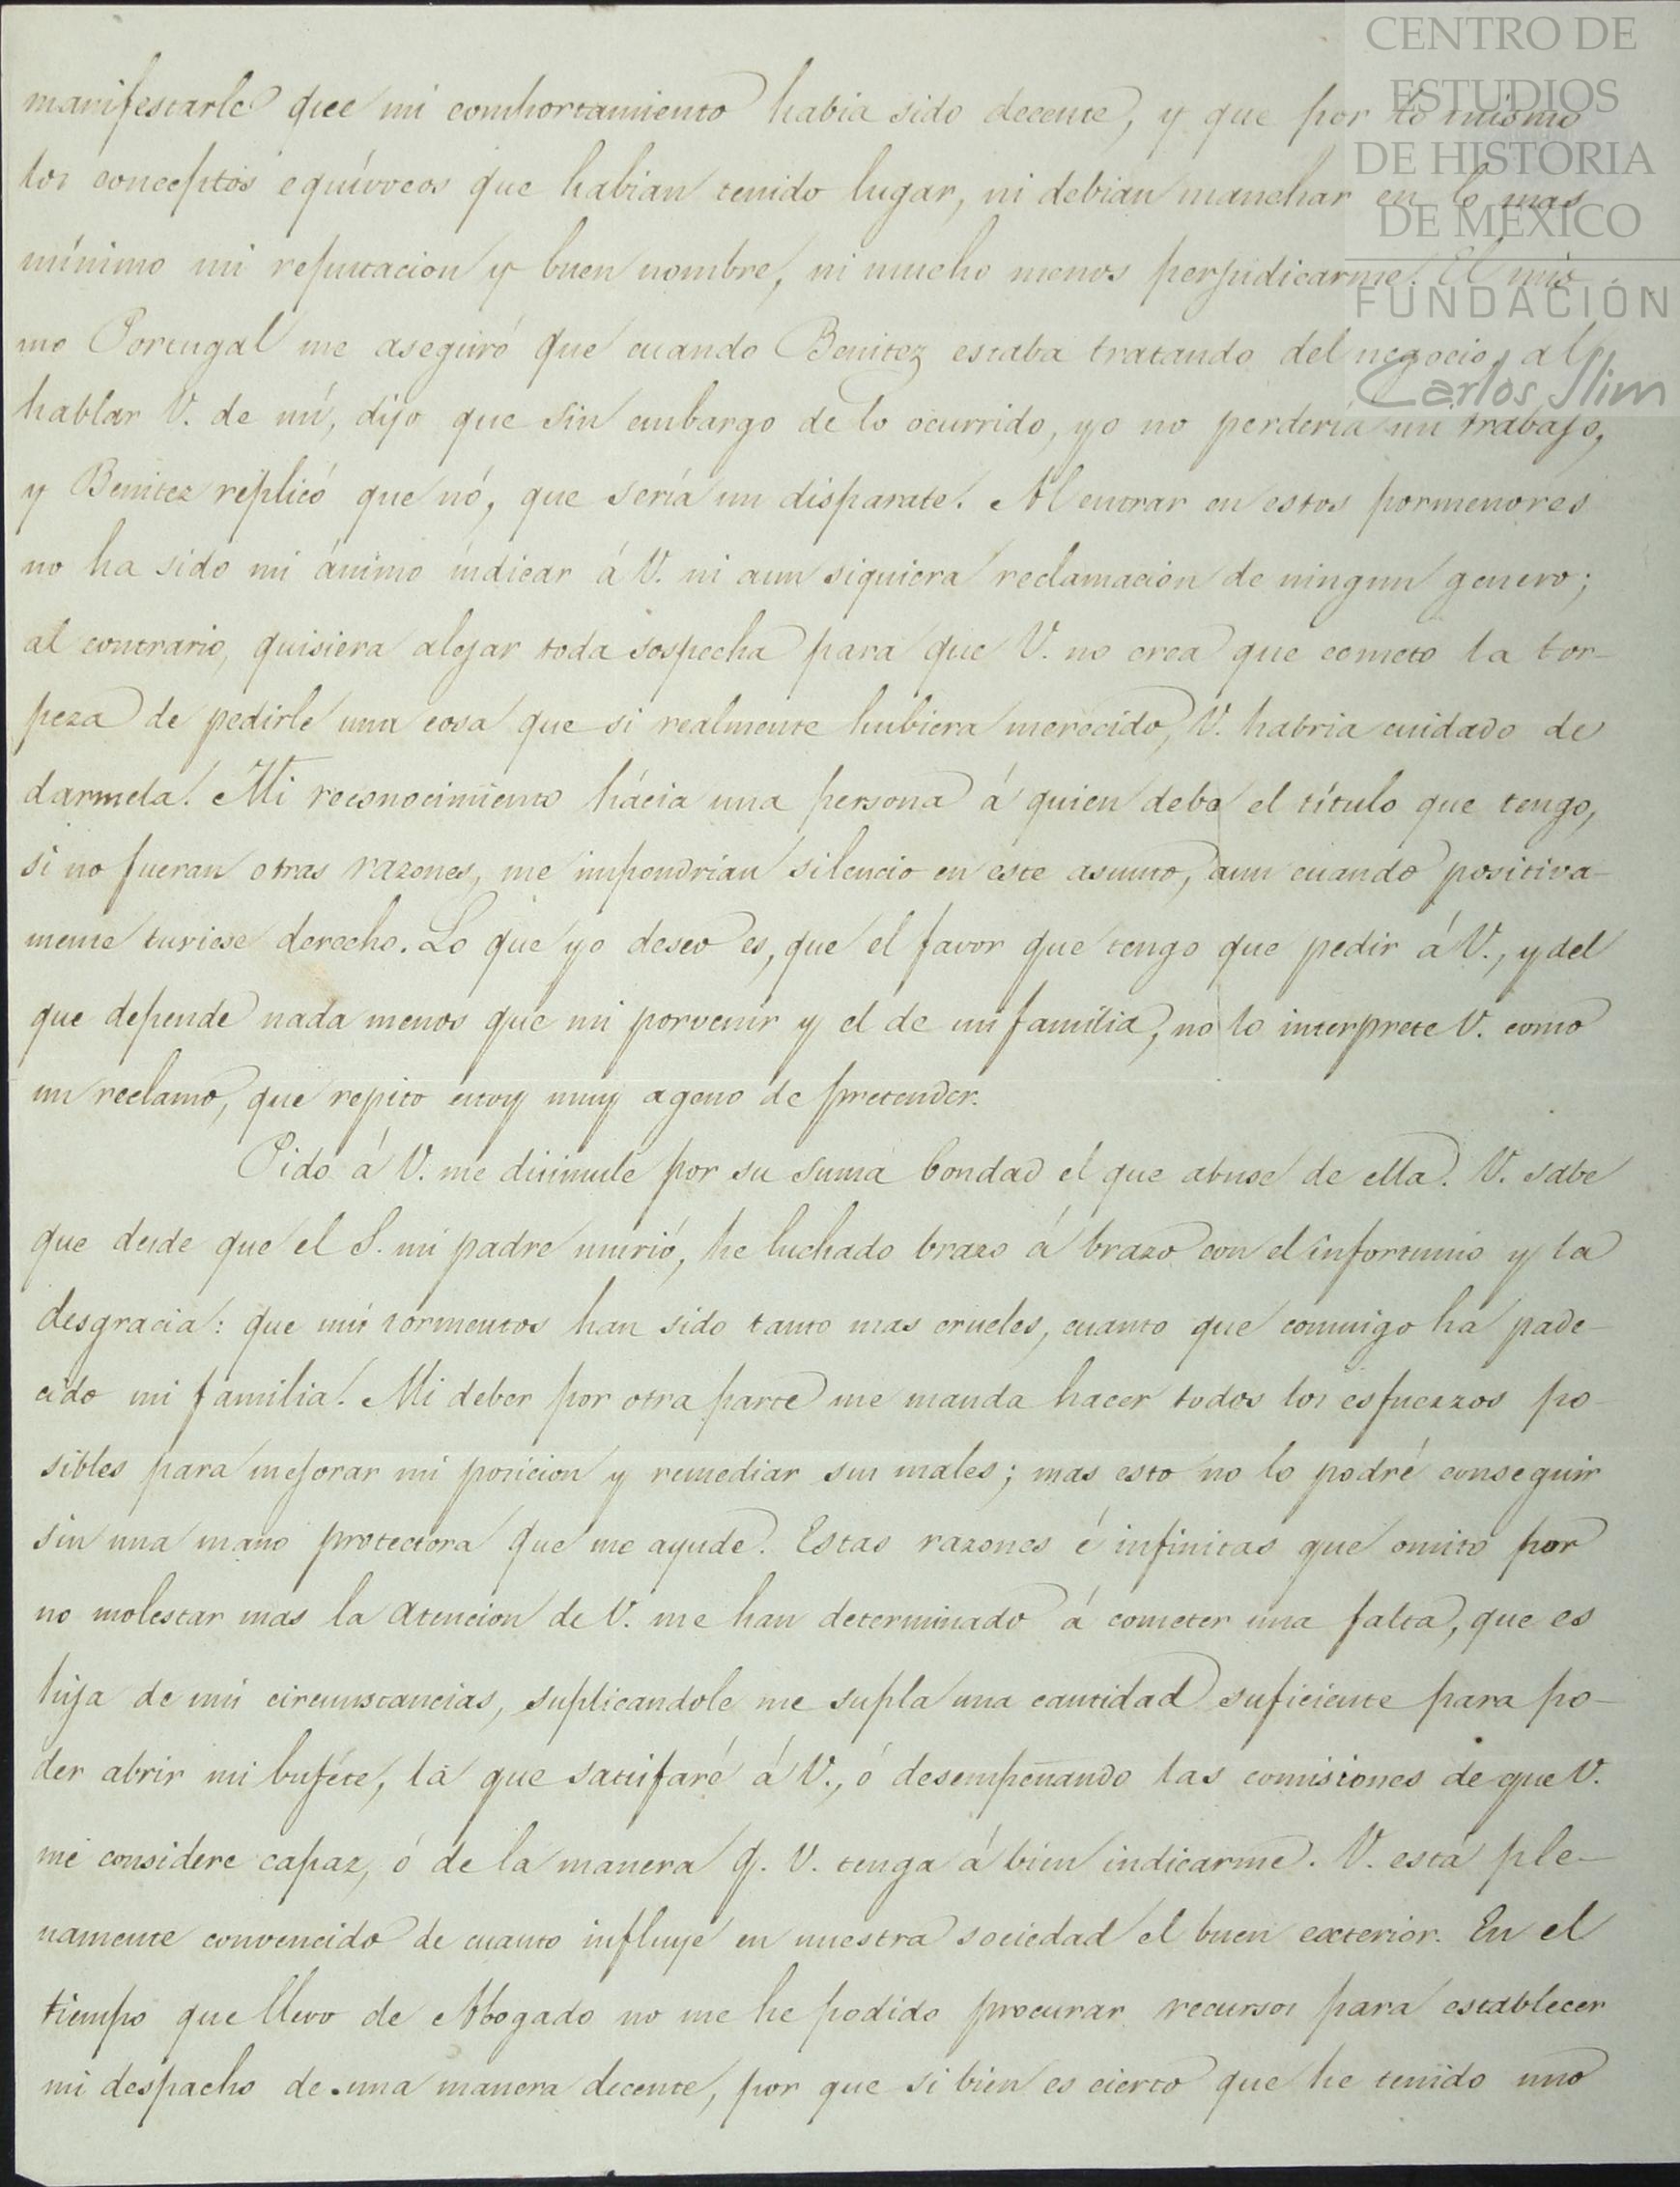 CENTRO DE
ESTUDIOS
DE HISTORIA
DE MÉXICO
FUNDACIÓN
Carlos Slim
manifestarle que mi comportamiento habia sido decente, y que por lo mismo
los conceptos equívocos que habian tenido lugar, ni debian manchar en lo mas
mínimo mi reputacion y buen nombre, ni mucho menos perjudicarme. El mis
mo Portugal me aseguró que cuando Benitez estaba tratando del negocio, al
hablar V. de mí, dijo que sin embargo de lo ocurrido, yo no perdería mi trabajo,
y Benitez replicó que nó, que sería un disparate. Al entrar en estos pormenores
no ha sido mi ánimo indicar á V. ni aun siquiera reclamación de ningun genero;
al contrario, quisiera alejar toda sospecha para que V. no crea que cometo la tor-
peza de pedirle una cosa que si realmente hubiera merecido, V. habria cuidado de
darmela. Mi reconocimiento hácia una persona á quien debo el título que tengo,
si no fueran otras razones, me impondrían silencio en este asunto, aun cuando positiva-
mente tuviese derecho. Lo que yo deseo es, que el favor que tengo que pedir á V., y del
que depende nada menos que mi porvenir y el de mi familia, no lo interprete V. como
un reclamo, que repito estoy muy ageno de pretender.
Pido á V. me disimule por su suma bondad el que abuse de ella. V. sabe
que desde que el S. mi padre murió, he luchado brazo á brazo con el infortunio y la
desgracia: que mis tormentos han sido tanto mas crueles, cuanto que conmigo ha pade-
cido mi familia. Mi deber por otra parte me manda hacer todos los esfuerzos po-
sibles para mejorar mi posicion y remediar sus males; mas esto no lo podré conseguir
sin una mano protectora que me ayude. Estas razones é infinitas que omito por
no molestar mas la atencion de V. me han determinado á cometer una falta, que es
hija de mis circunstancias, suplicandole me supla una cantidad suficiente para po-
der abrir mi bufete, la que satisfaré á V., ó desempeñando las comisiones de que V.
me considere capaz, ó de la manera q. V. tenga á bien indicarme. V. está ple-
namente convencido de cuanto influye en nuestra sociedad el buen exterior. En el
tiempo que llevo de Abogado no me he podido procurar recursos para establecer
mi despacho de una manera decente, por que si bien es cierto que he tenido uno